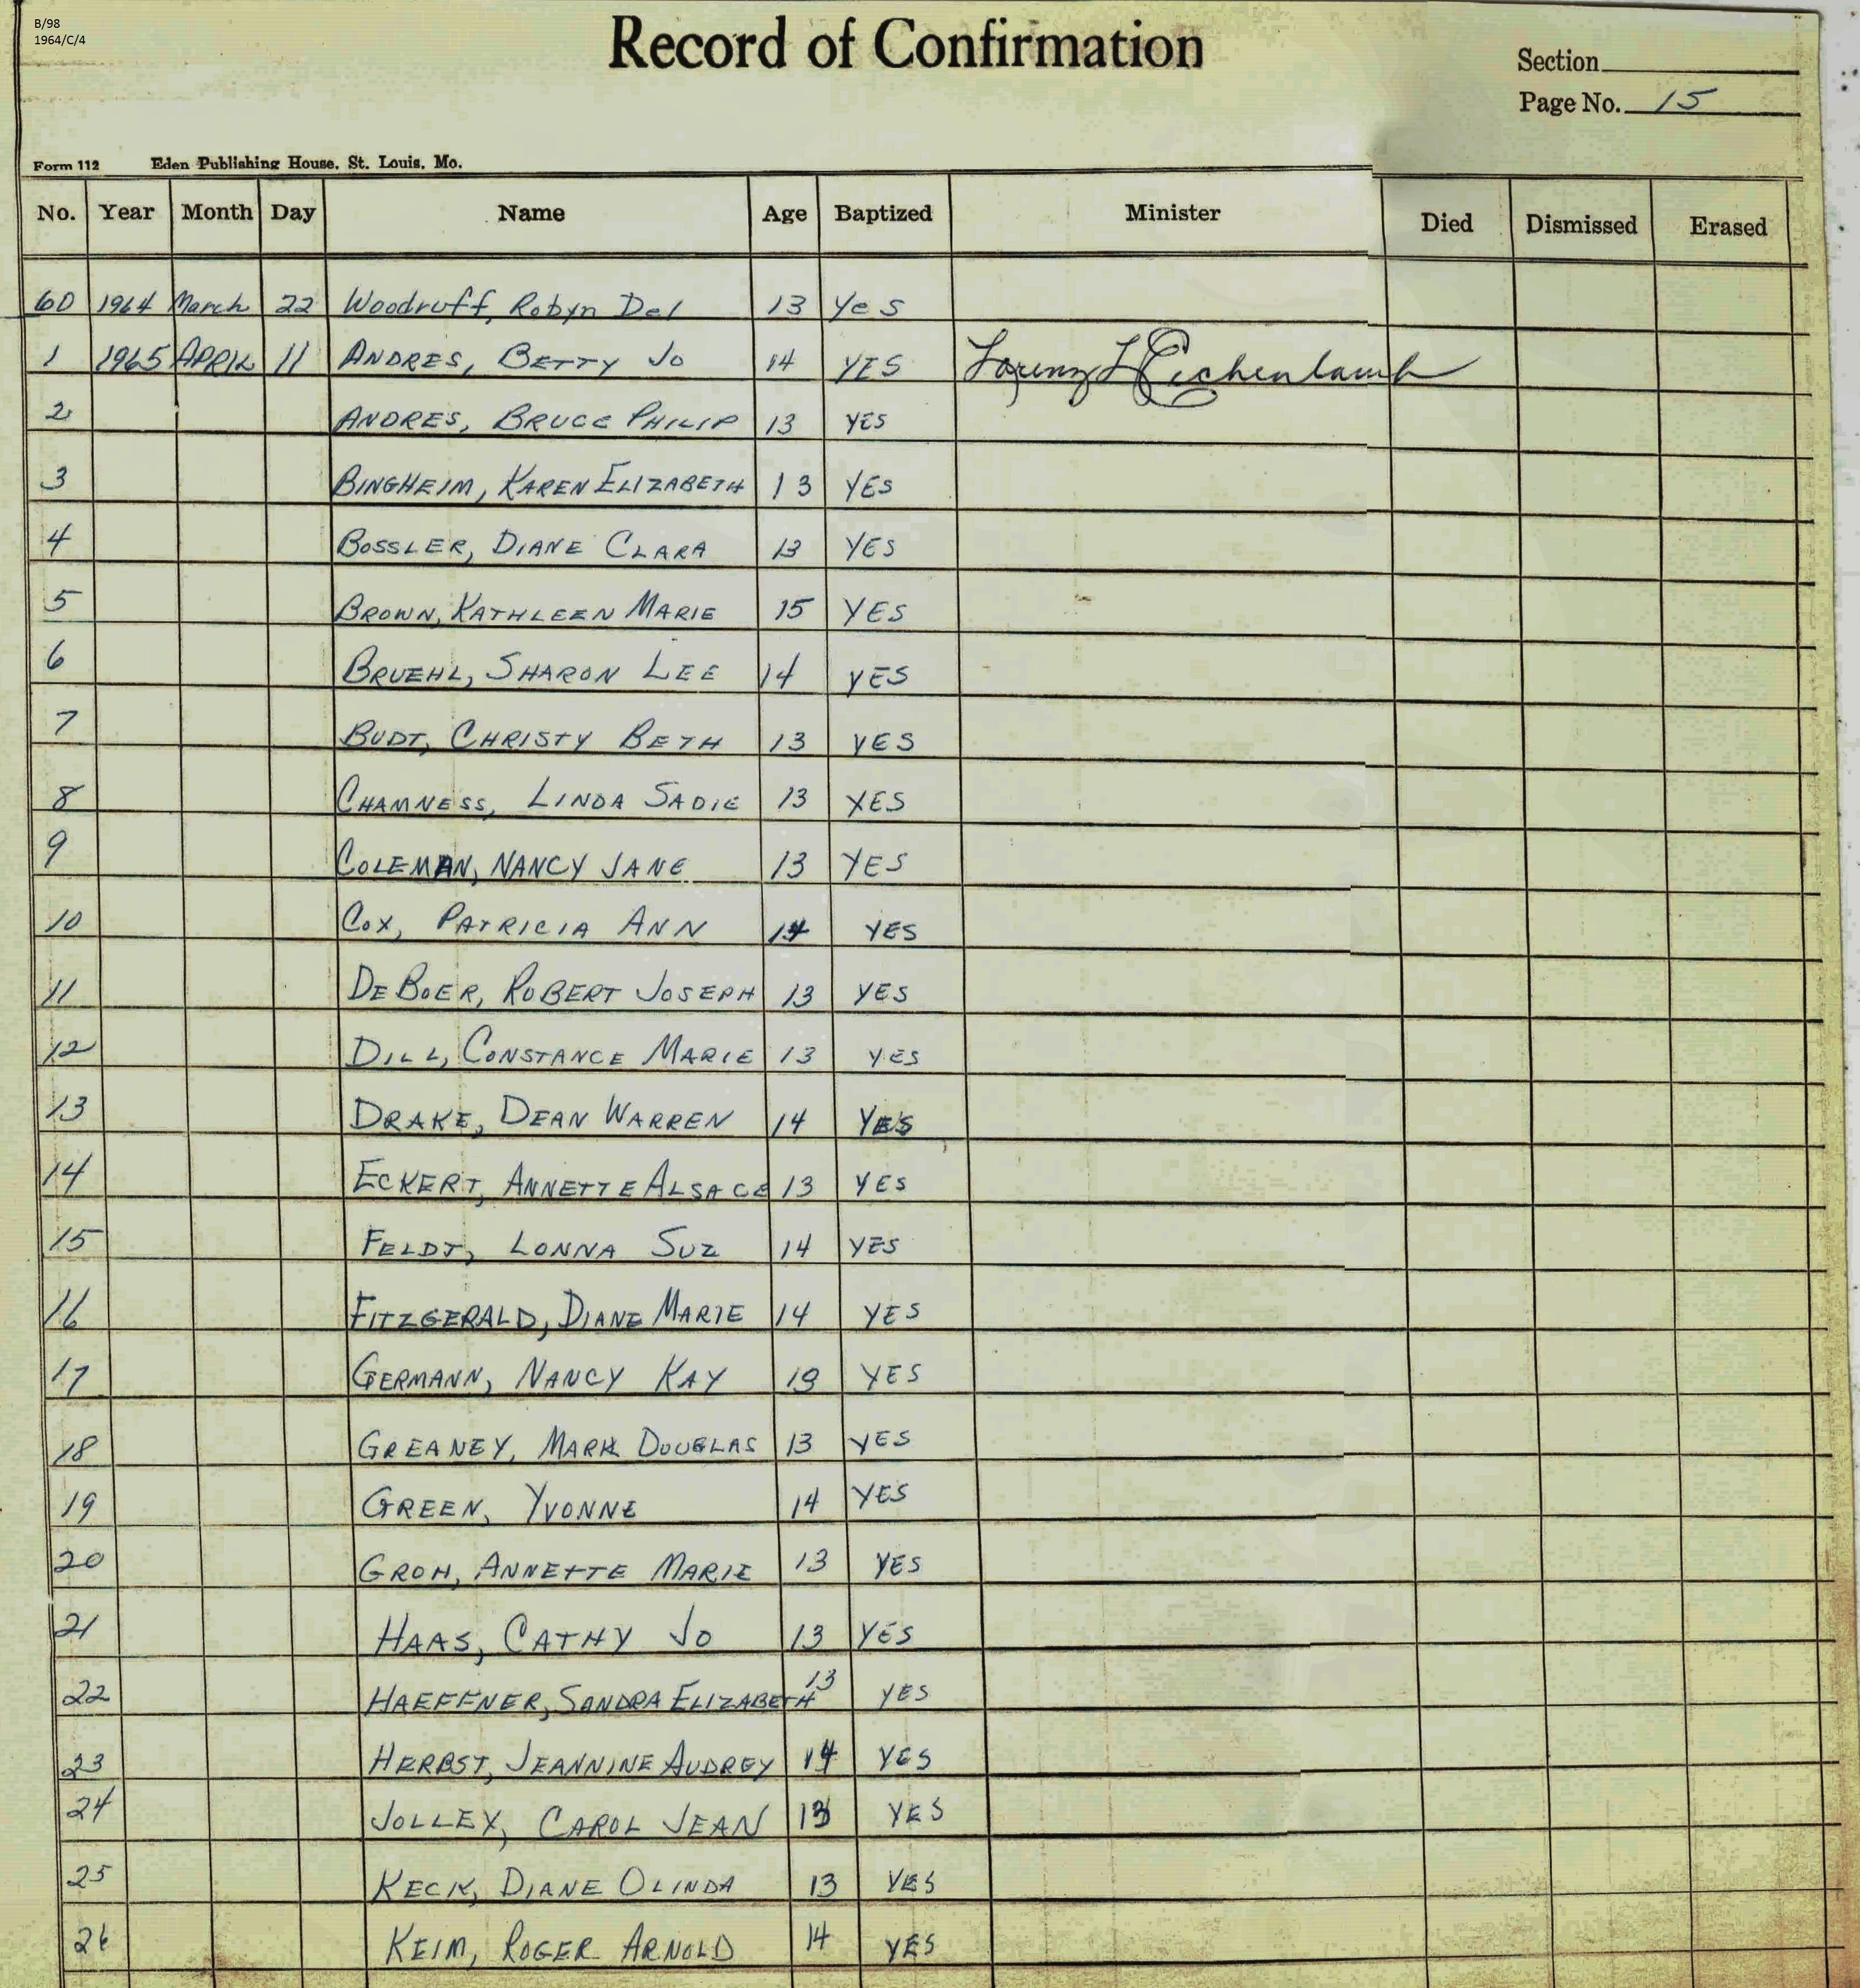 B/98
1964/C/4
Record of Confirmation
Section
Page No. 15
Form 112 Eden Publishing House, St. Louis, Mo.
No. Year Month Day Name Age Baptized Minister Died Dismissed Erased
60 1964 March 22 Woodruff, Robyn Del 13 Yes
1 1965 APRIL 11 ANDRES, BETTY JO 14 YES Lorenz Eichenlaub
2 ANDRES, BRUCE PHILIP 13 YES
3 BINGHEIM, KAREN ELIZABETH 13 YES
4 BOSSLER, DIANE CLARA 13 YES
5 BROWN, KATHLEEN MARIE 15 YES
6 BRUEHL, SHARON LEE 14 YES
7 BUDT, CHRISTY BETH 13 YES
8 CHAMNESS, LINDA SADIE 13 YES
9 COLEMAN, NANCY JANE 13 YES
10 COX, PATRICIA ANN 14 YES
11 DEBOER, ROBERT JOSEPH 13 YES
12 DILL, CONSTANCE MARIE 13 YES
13 DRAKE, DEAN WARREN 14 YES
14 ECKERT, ANNETTE ALSACE 13 YES
15 FELDT, LONNA SUZ 14 YES
16 FITZGERALD, DIANE MARIE 14 YES
17 GERMANN, NANCY KAY 13 YES
18 GREANEY, MARK DOUGLAS 13 YES
19 GREEN, YVONNE 14 YES
20 GROH, ANNETTE MARIE 13 YES
21 HAAS, CATHY JO 13 YES
22 HAEFFNER, SANDRA ELIZABETH 13 YES
23 HERBST, JEANNINE AUDREY 14 YES
24 JOLLEY, CAROL JEAN 13 YES
25 KECK, DIANE OLINDA 13 YES
26 KEIM, ROGER ARNOLD 14 YES